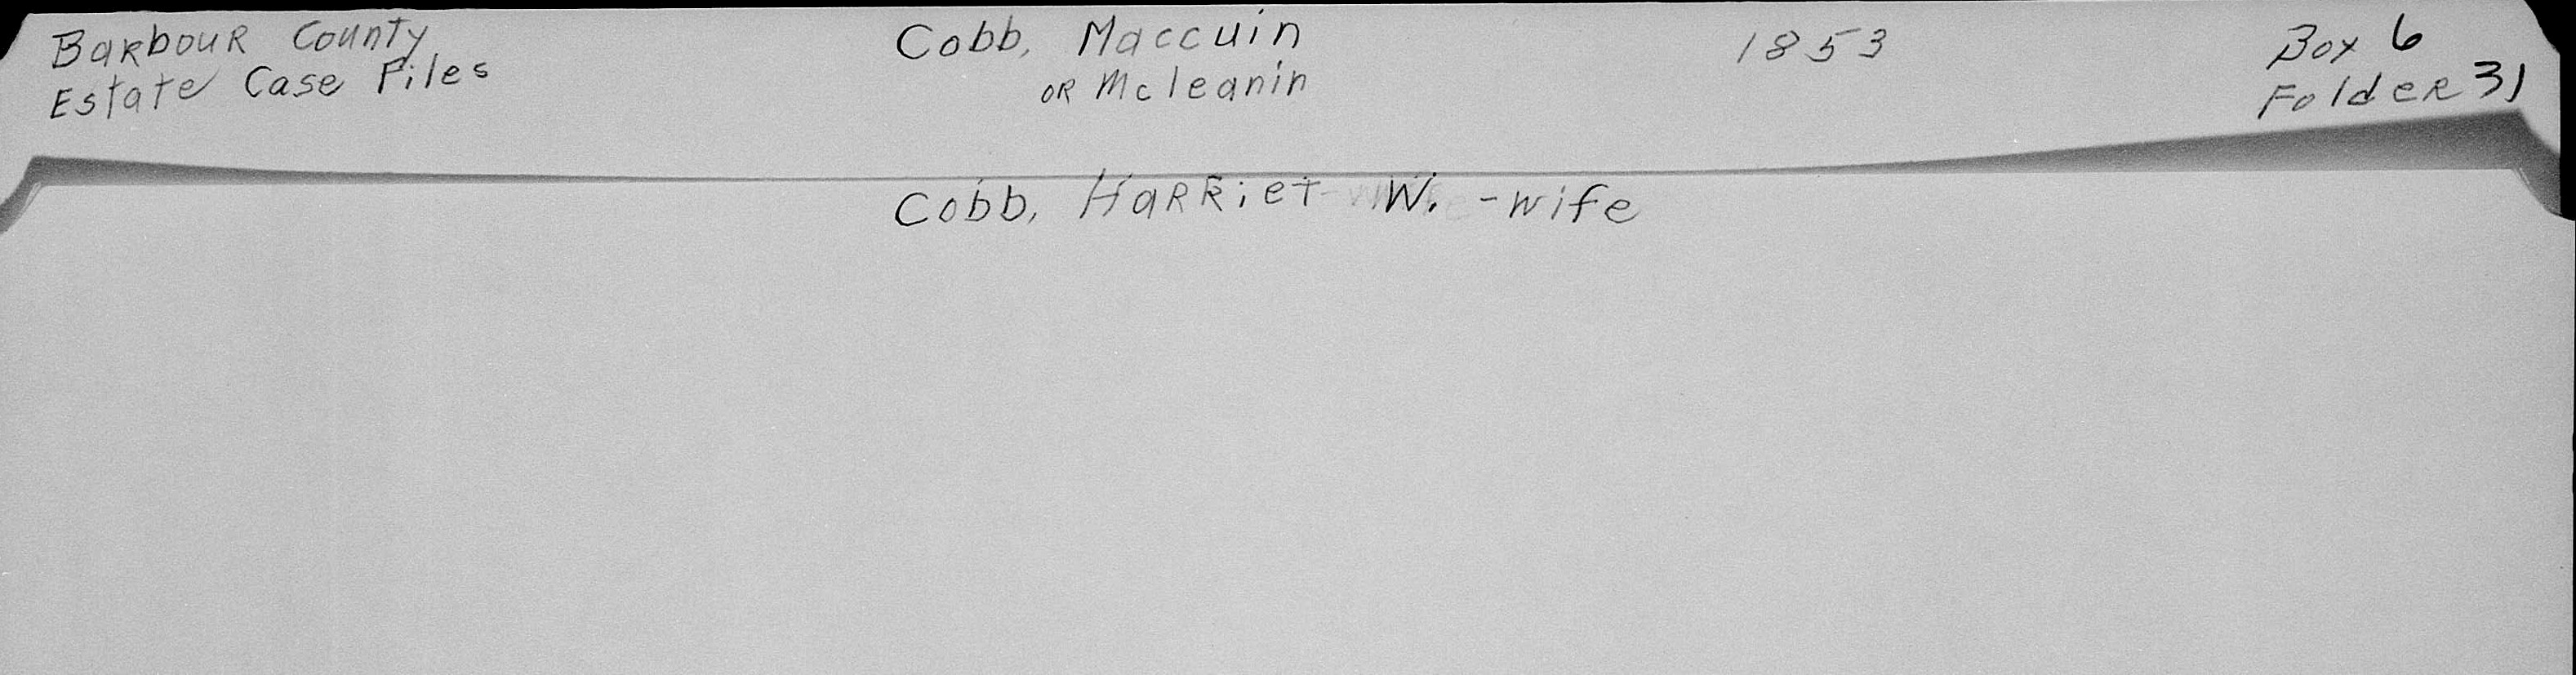 Barbour County
Estate Case Files
Cobb, Maccuin
or Mcleanin
1853
Box 6
Folder 31
Cobb, Harriet W. - wife